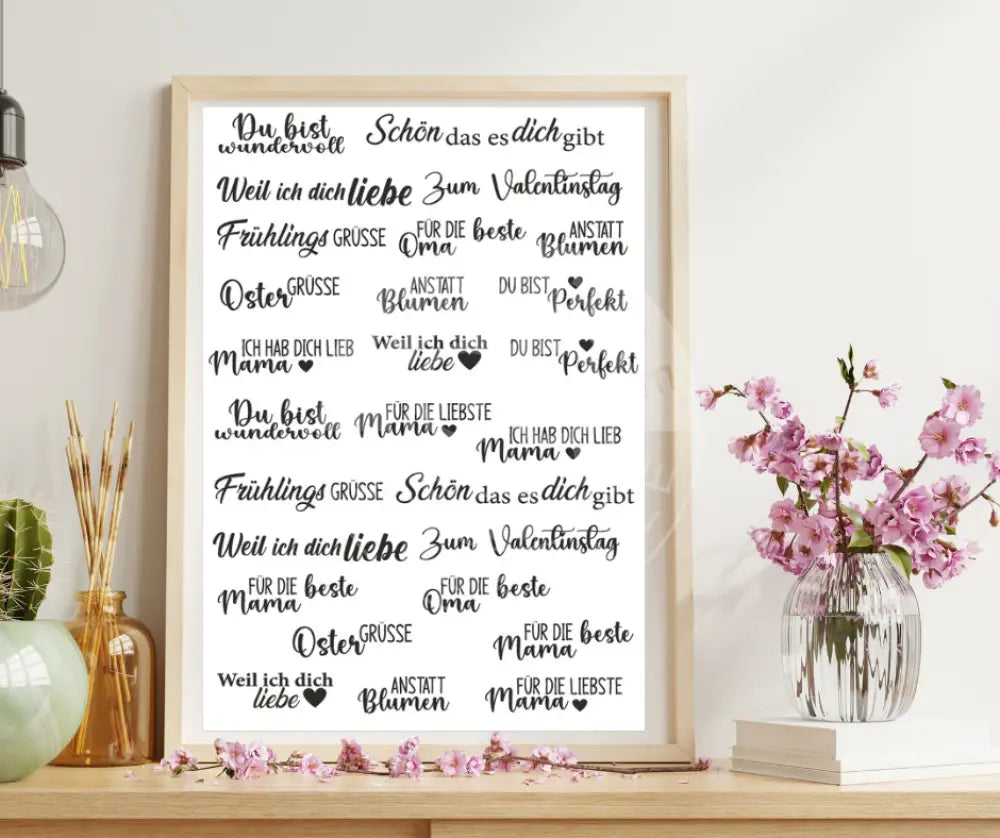 Du bist
wundervoll
Schön das es dich gibt
Weil ich dich liebe
Zum Valentinstag
Frühlings GRÜSSE
FÜR DIE beste
Oma
ANSTATT
Blumen
Oster GRÜSSE
ANSTATT
Blumen
DU BIST
Perfekt
ICH HAB DICH LIEB
Mama
Weil ich dich
liebe
DU BIST
Perfekt
Du bist
wundervoll
FÜR DIE LIEBSTE
Mama
ICH HAB DICH LIEB
Mama
Frühlings GRÜSSE
Schön das es dich gibt
Weil ich dich liebe
Zum Valentinstag
FÜR DIE beste
Mama
FÜR DIE beste
Oma
Oster GRÜSSE
FÜR DIE beste
Mama
Weil ich dich
liebe
ANSTATT
Blumen
FÜR DIE LIEBSTE
Mama